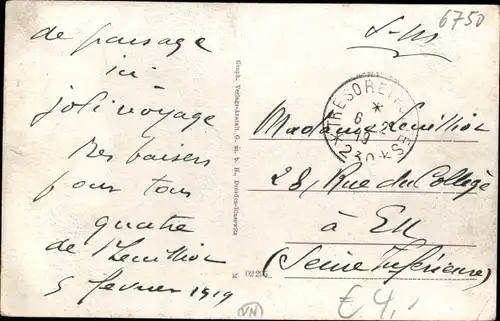 de passage
ici
joli voyage
Bes baisers
pour tous
quatre
de
5 février 1919
Graph. Verlags-Anstalt G. m. b. H., Dresden-Blasewitz
M 02205
6750
TRESOR ET POSTES
*
6 2
19
* 230 *
Madame
28, Rue du Collège
à Eu
(Seine Inférieure)
VN
€ 4,-